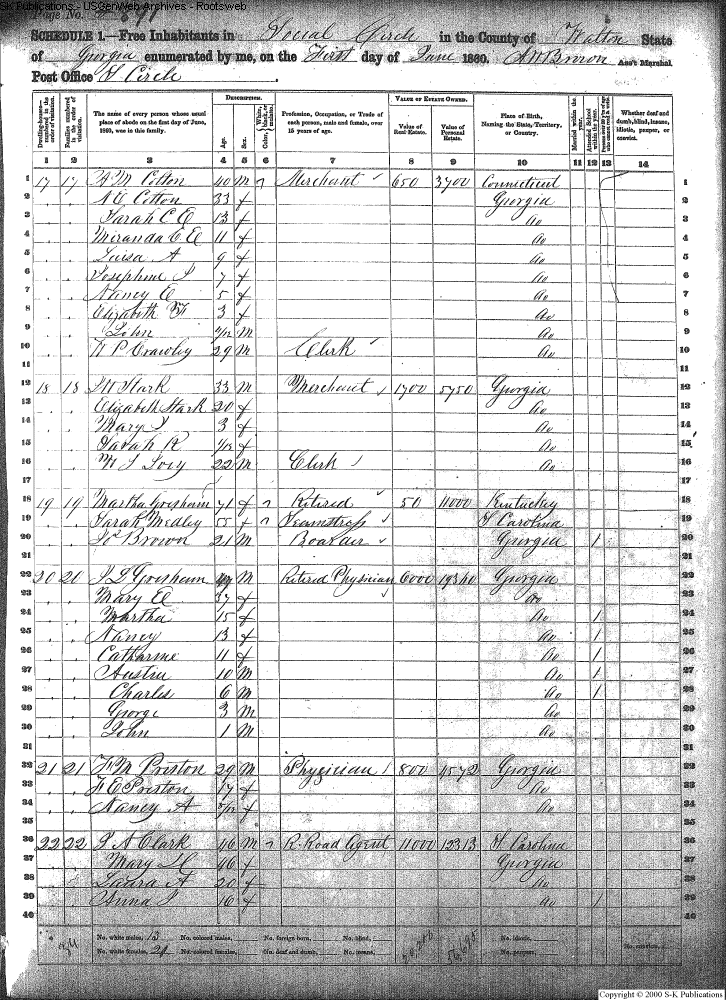 S-K Publications - USGenWeb Archives - Rootsweb
Page No.
SCHEDULE 1.—Free Inhabitants in Social Circle in the County of Walton State
of Georgia enumerated by me, on the First day of June 1860. Ass't Marshal.
Post Office S. Circle
DESCRIPTION. VALUE OF ESTATE OWNED.
Dwelling-houses—numbered in the order of visitation. Families numbered in the order of visitation. The name of every person whose usual place of abode on the first day of June, 1860, was in this family. Age. Sex. Color, White, black, or mulatto. Profession, Occupation, or Trade of each person, male and female, over 15 years of age. Value of Real Estate. Value of Personal Estate. Place of Birth, Naming the State, Territory, or Country. Married within the year. Attended School within the year. Whether deaf and dumb, blind, insane, idiotic, pauper, or convict.
1 2 3 4 5 6 7 8 9 10 11 12 13 14
1 17 17 A M Cotton 40 M Merchant 650 3700 Connecticut 1
2 Cotton 33 f Georgia 2
3 Sarah C E 13 f Do 3
4 Miranda C E 11 f Do 4
5 Luisa A 9 f Do 5
6 Josephine 7 f Do 6
7 Nancy E 5 f Do 7
8 Elizabeth 3 f Do 8
9 John M Do 9
10 Crawley 29 M Clerk Do 10
11 11
12 18 18 Stark 33 M Merchant 1700 5750 Georgia 12
13 Elizabeth Stark 20 f Do 13
14 Mary 3 f Do 14
15 Sarah R f Do 15
16 22 M Clerk Do 16
17 17
18 19 19 Martha Gresham 71 f Retired 50 11000 Kentucky 18
19 Sarah Medley 55 f Seamstress S Carolina 19
20 Brown 21 M Georgia 1 20
21 21
22 20 20 Gresham M Retired Physician 6000 19340 Georgia 22
23 Mary E 37 f Do 23
24 Martha 15 f Do 1 24
25 Nancy 13 f Do 1 25
26 Catharine 11 f Do 1 26
27 Austin 10 M Do 1 27
28 Charles 6 M Do 1 28
29 George 3 M Do 29
30 John 1 M Do 30
31 31
32 21 21 F M Preston 29 M Physician 800 4572 Georgia 32
33 F E Preston 17 f Do 33
34 Nancy A f Do 34
35 35
36 22 22 A Clark 46 M R. Road Agent 11000 12313 S Carolina 36
37 Mary 46 f Georgia 37
38 Laura A 20 f Do 38
39 Anna 16 f Do 1 39
40 40
No. white males, 13 No. colored males, No. foreign born, No. blind, No. idiotic,
No. white females, 21 No. colored females, No. deaf and dumb, No. insane, No. paupers, No. convicts,
20,200 56,695
Copyright © 2000 S-K Publications